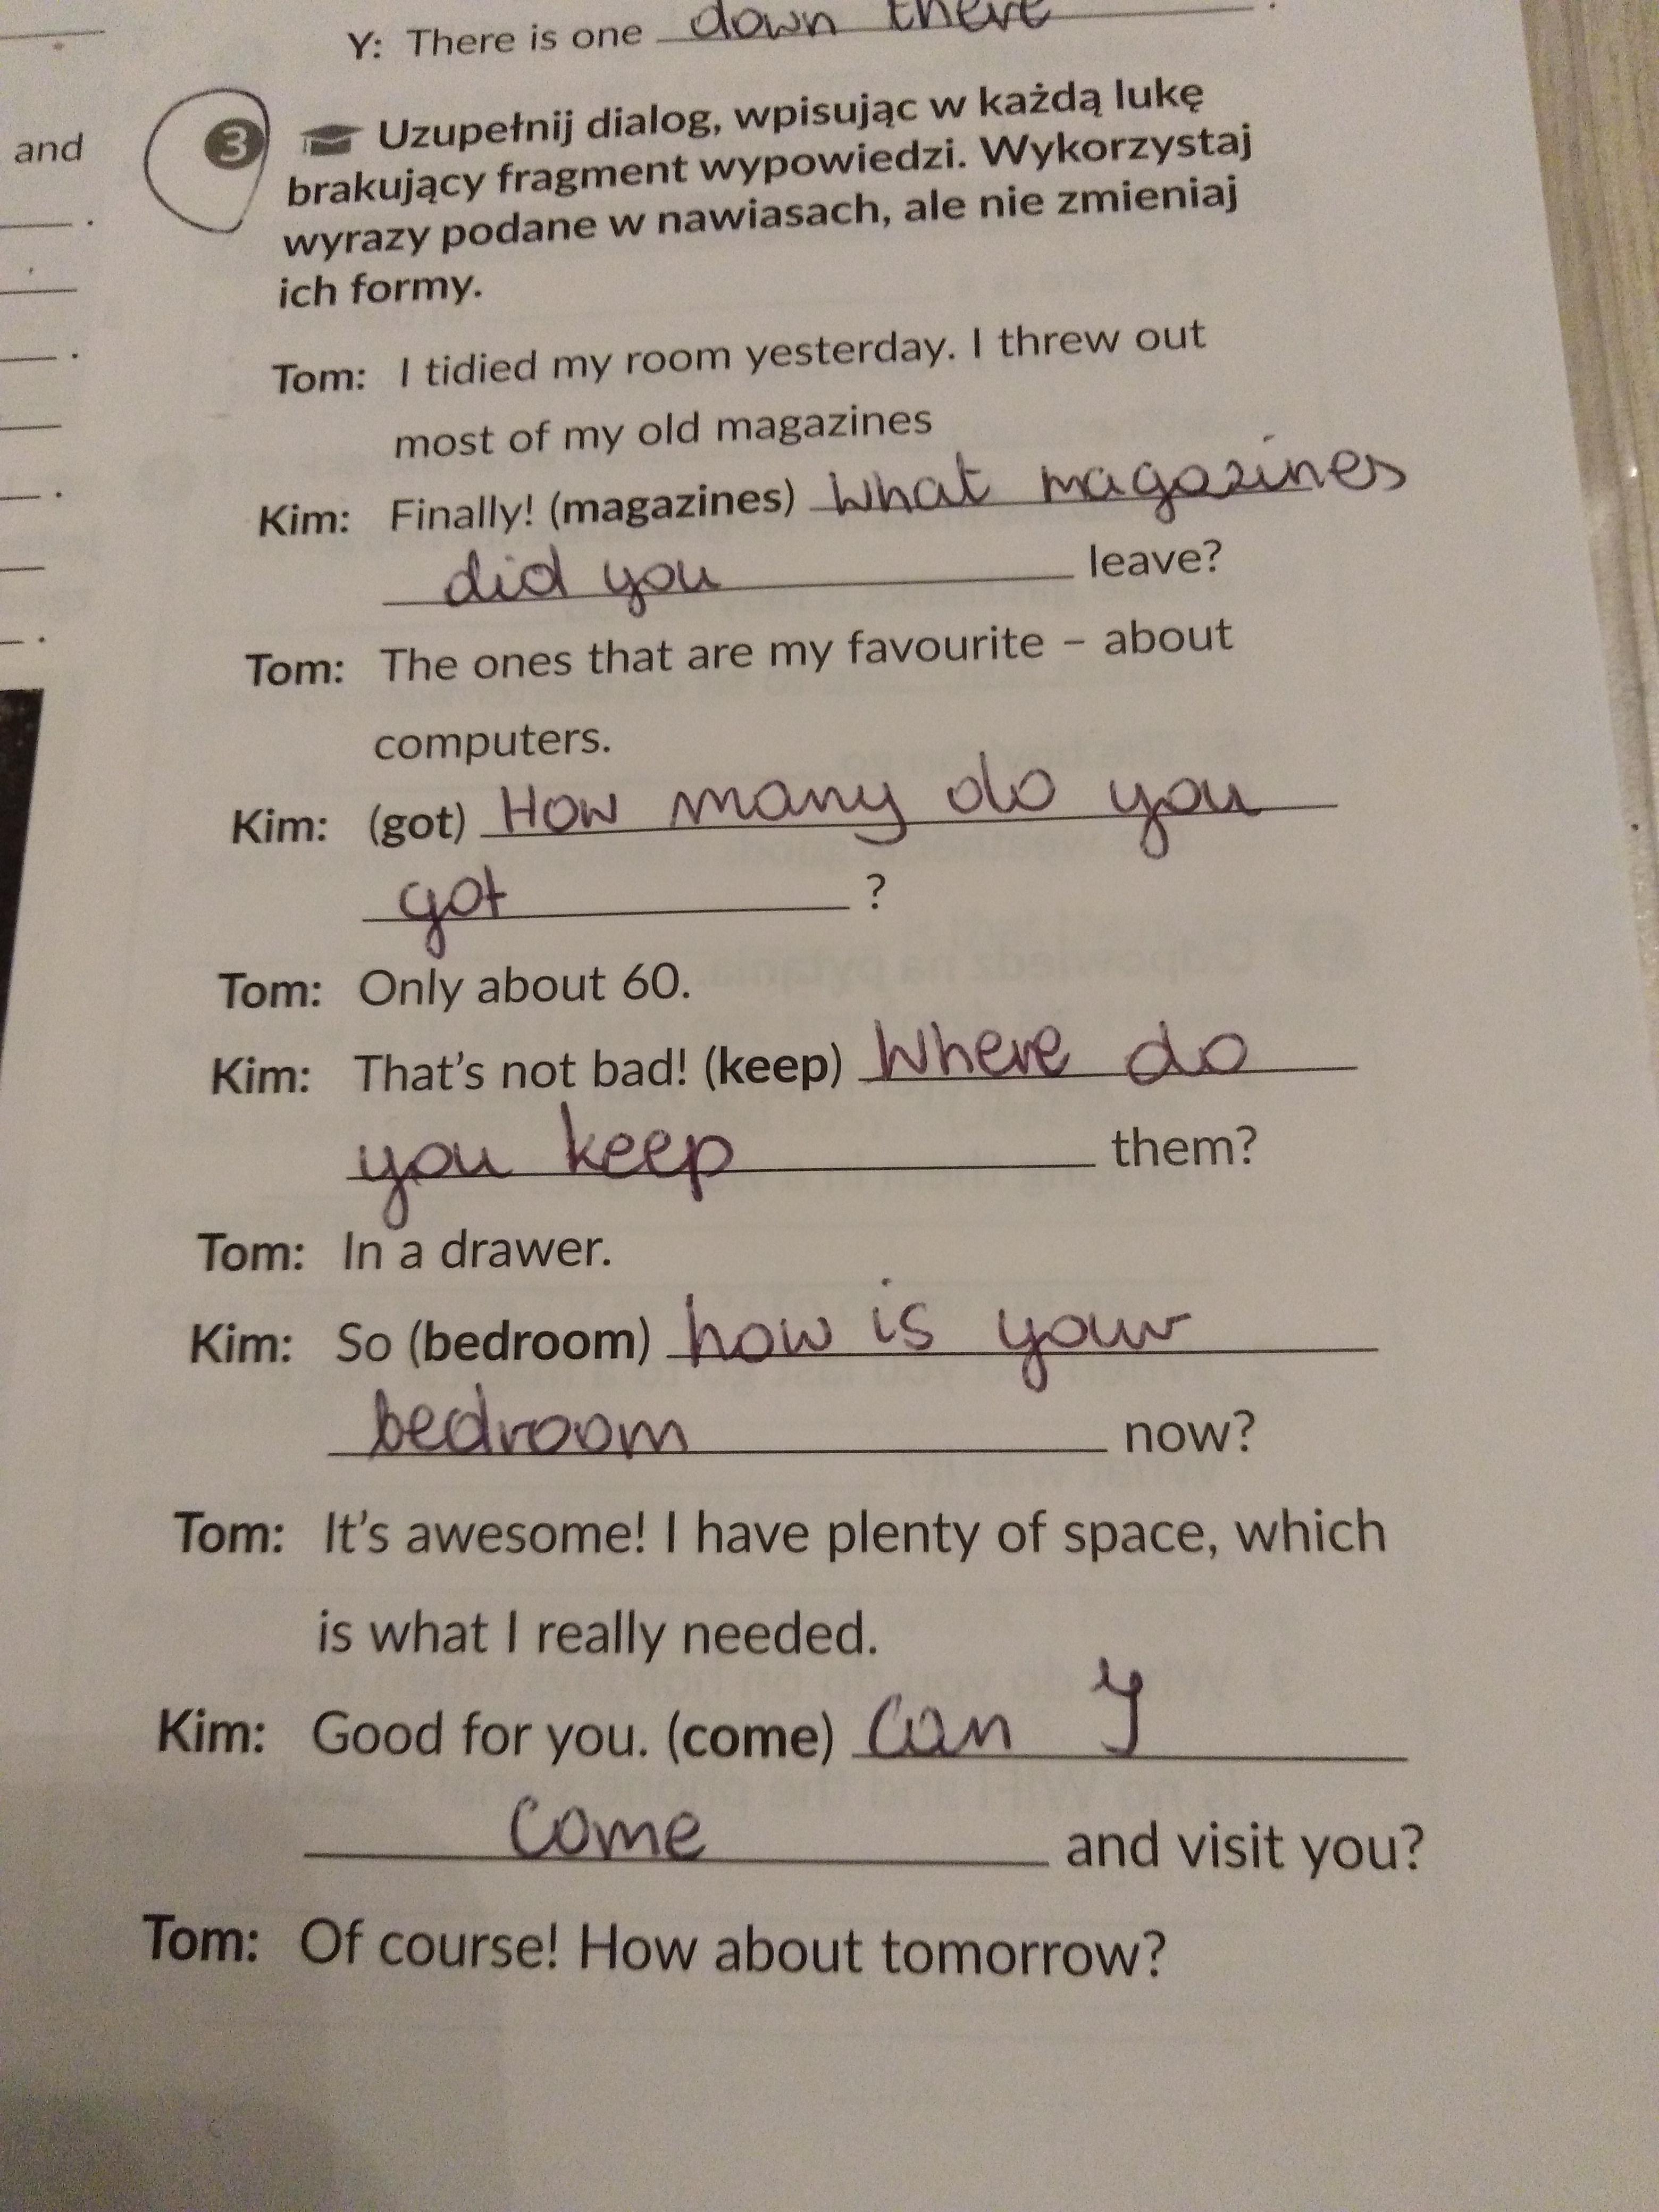 Y: There is one down there.
and
3 Uzupełnij dialog, wpisując w każdą lukę
brakujący fragment wypowiedzi. Wykorzystaj
wyrazy podane w nawiasach, ale nie zmieniaj
ich formy.
Tom: I tidied my room yesterday. I threw out
most of my old magazines
Kim: Finally! (magazines) What magazines
did you leave?
Tom: The ones that are my favourite – about
computers.
Kim: (got) How many do you
got ?
Tom: Only about 60.
Kim: That's not bad! (keep) Where do
you keep them?
Tom: In a drawer.
Kim: So (bedroom) how is your
bedroom now?
Tom: It's awesome! I have plenty of space, which
is what I really needed.
Kim: Good for you. (come) Can I
come and visit you?
Tom: Of course! How about tomorrow?